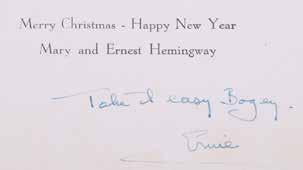 Merry Christmas - Happy New Year
Mary and Ernest Hemingway
Take it easy Bogey.
Ernie